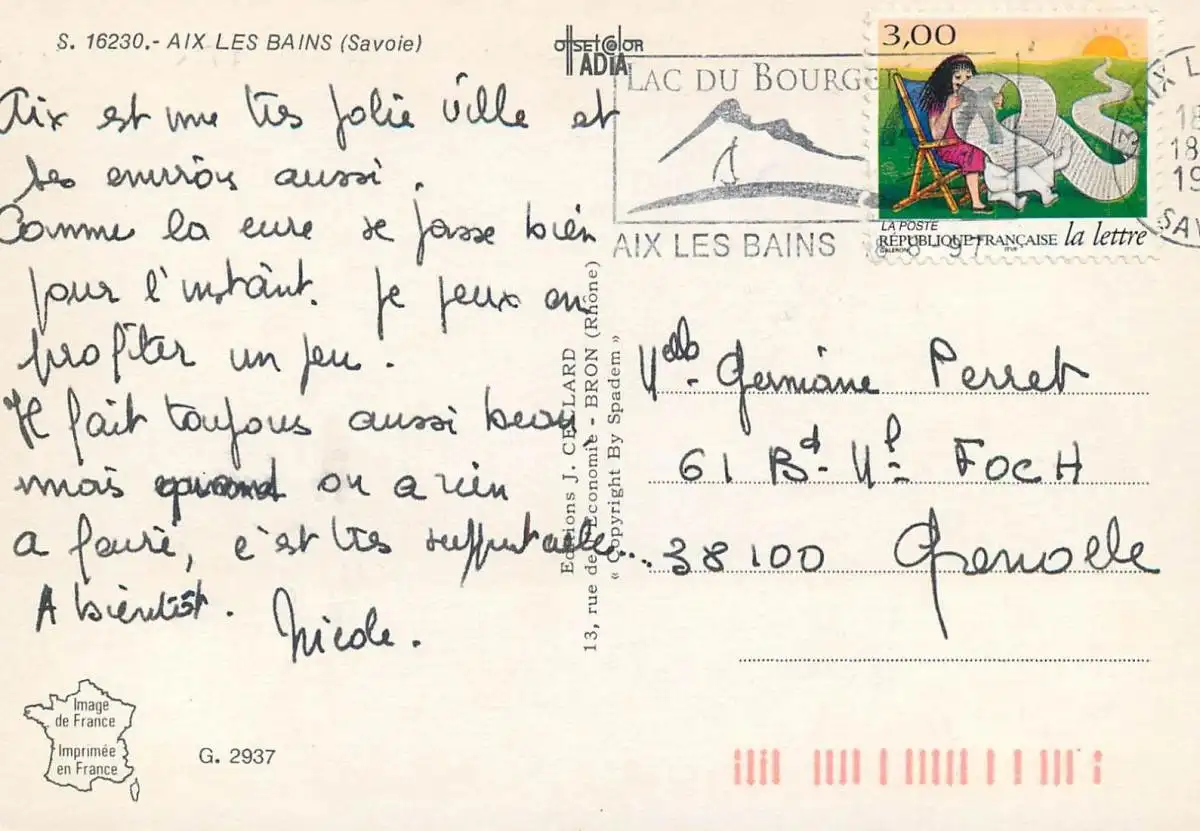 S. 16230.- AIX LES BAINS (Savoie)
Aix est une très jolie ville et
ses environs aussi.
Comme la cure se passe bien
pour l'instant. Je peux en
profiter un peu.
Il fait toujours aussi beau
mais quand on a rien
a faire, c'est très supportable...
A bientôt.
Nicole.
Image
de France
Imprimée
en France
G. 2937
OffsetColor
ADIA
Editions J. CELLARD
13, rue de l'Economie - BRON (Rhône)
« Copyright By Spadem »
LAC DU BOURGET
AIX LES BAINS
3,00
LA POSTE
RÉPUBLIQUE FRANÇAISE la lettre
AIX L
18
18
19
SAV
Melle Germaine Perret
61 Bd Ml FOCH
38100 Grenoble